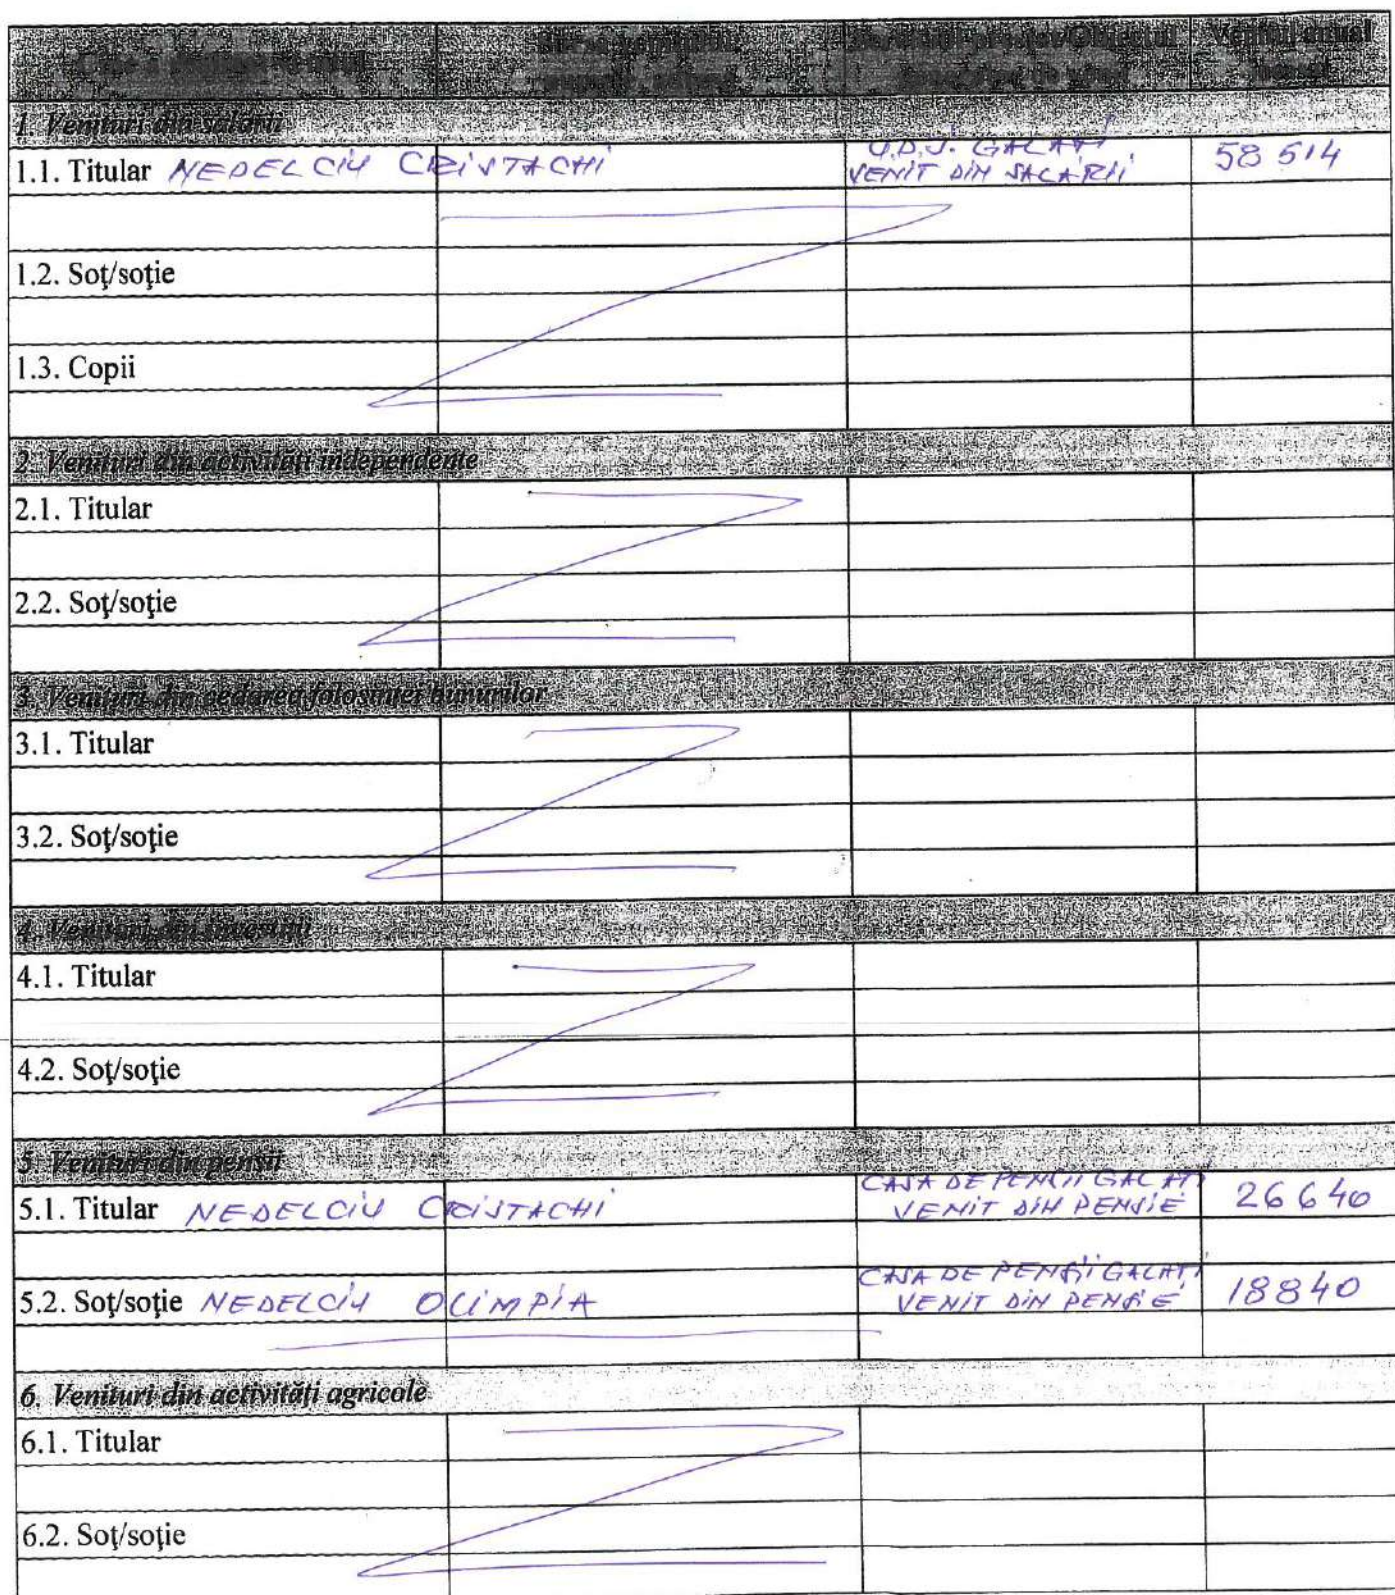 Venitul anual
1. Venituri din salarii
1.1. Titular NEDELCIU CRISTACHI
U.D.J. GALAȚI
VENIT DIN SALARII
58 514
1.2. Soţ/soţie
1.3. Copii
2. Venituri din activităţi independente
2.1. Titular
2.2. Soţ/soţie
3. Venituri din cedarea folosinţei bunurilor
3.1. Titular
3.2. Soţ/soţie
4. Venituri din investiţii
4.1. Titular
4.2. Soţ/soţie
5. Venituri din pensii
5.1. Titular NEDELCIU CRISTACHI
CASA DE PENSII GALAȚI
VENIT DIN PENSIE
26 640
5.2. Soţ/soţie NEDELCIU OLIMPIA
CASA DE PENSII GALAȚI
VENIT DIN PENSIE
18840
6. Venituri din activităţi agricole
6.1. Titular
6.2. Soţ/soţie